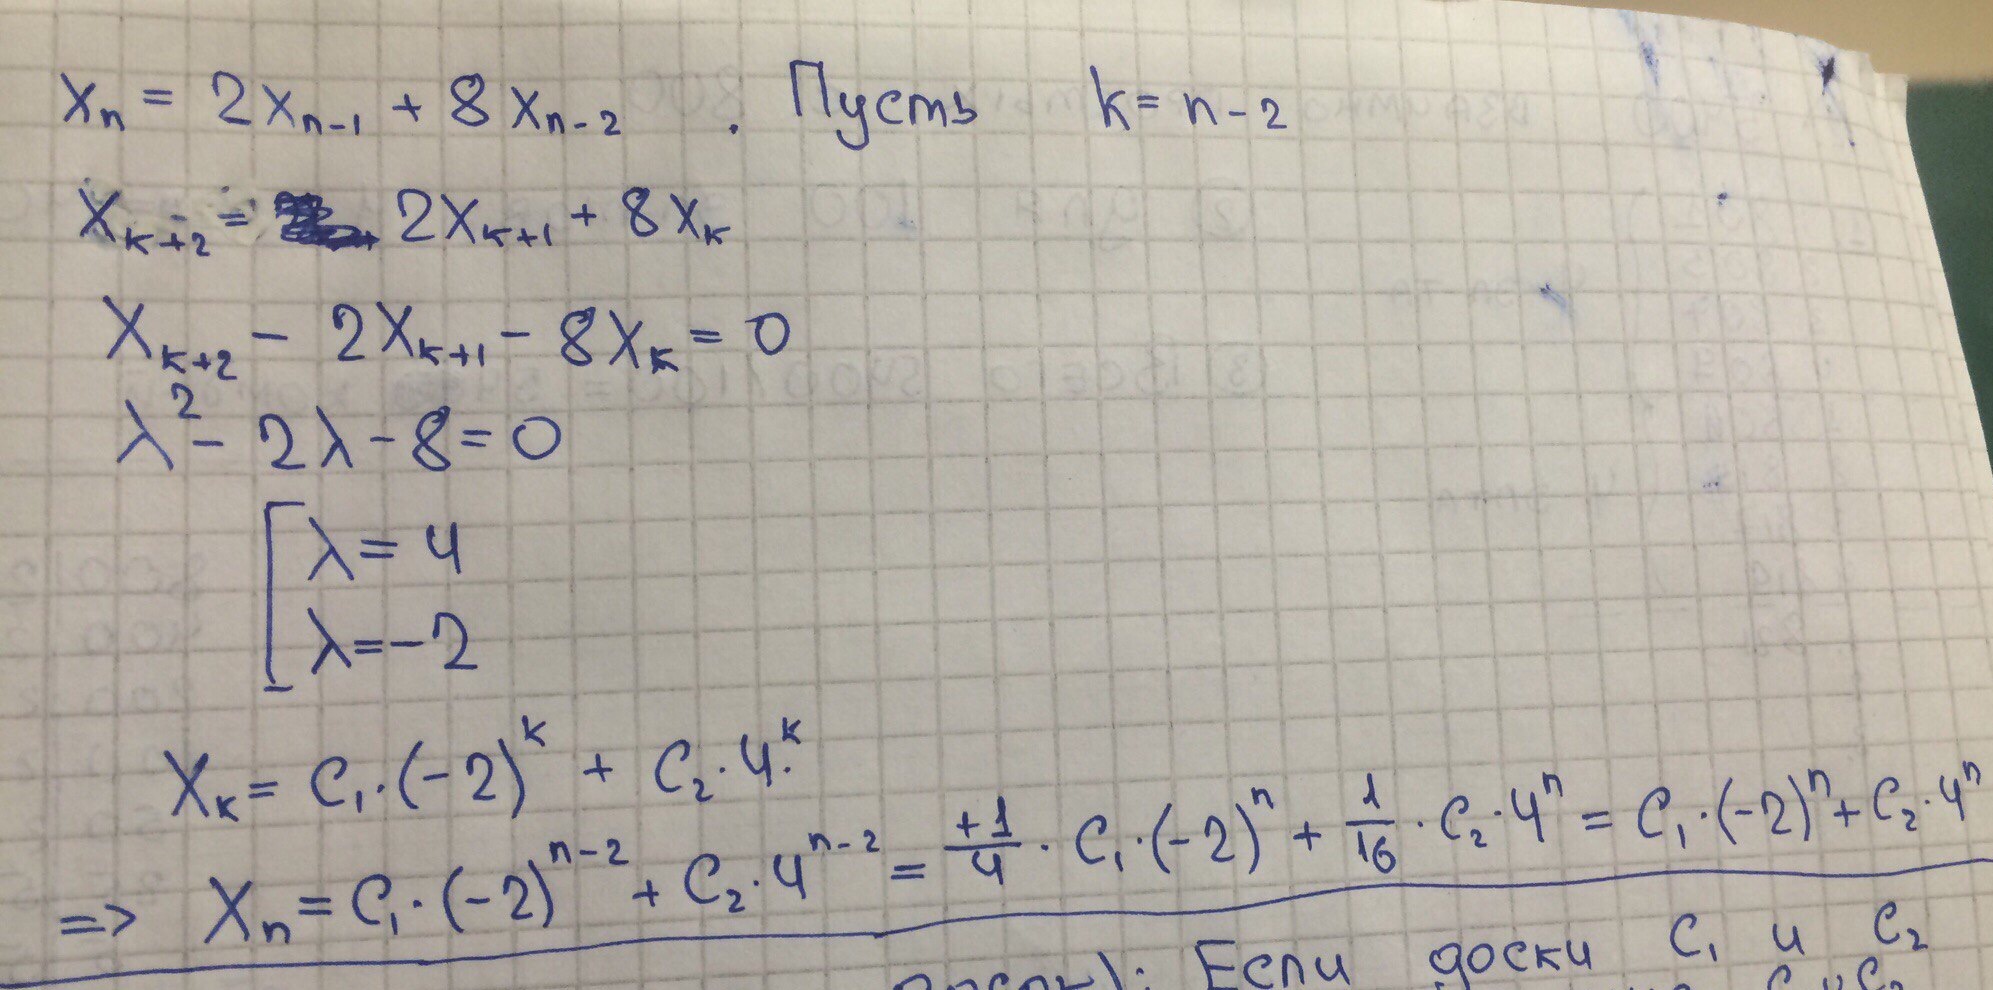 Xₙ = 2Xₙ₋₁ + 8Xₙ₋₂ . Пусть k = n - 2
Xₖ₊₂ = 2Xₖ₊₁ + 8Xₖ
Xₖ₊₂ - 2Xₖ₊₁ - 8Xₖ = 0
λ² - 2λ - 8 = 0
λ = 4
λ = -2
Xₖ = C₁·(-2)ᵏ + C₂·4ᵏ
=> Xₙ = C₁·(-2)ⁿ⁻² + C₂·4ⁿ⁻² = +1/4 · C₁·(-2)ⁿ + 1/16 · C₂·4ⁿ = C₁·(-2)ⁿ + C₂·4ⁿ
Если доски C₁ и C₂